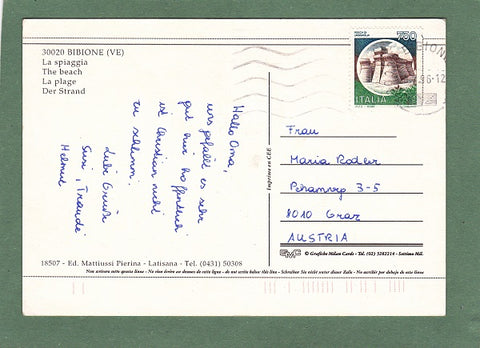 30020 BIBIONE (VE)
La spiaggia
The beach
La plage
Der Strand
Hallo Oma,
uns gefällt es sehr
gut hier hoffentlich
ist Christian nicht
zu schlimm.
Liebe Grüße
Susi, Traude
Helmut
18507 - Ed. Mattiussi Pierina - Latisana - Tel. (0431) 50308
Non scrivere sotto questa linea - No vien écrire au dessous de cette ligne - do not write below this line - Schreiben Sie nicht unter dieser Zeile - No escribir por debajo de este línea
Imprimé en CEE
750
ITALIA
96-12
Frau
Maria Rodler
8010 Graz
AUSTRIA
© Grafiche Milan Cards - Tel. (02) 3282214 - Settimo Mil.